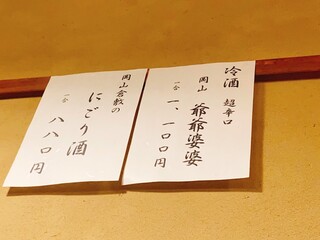 冷酒 超辛口
岡山 爺爺婆婆
一合 一、一〇〇円
岡山倉敷の
にごり酒
一合 八八〇円